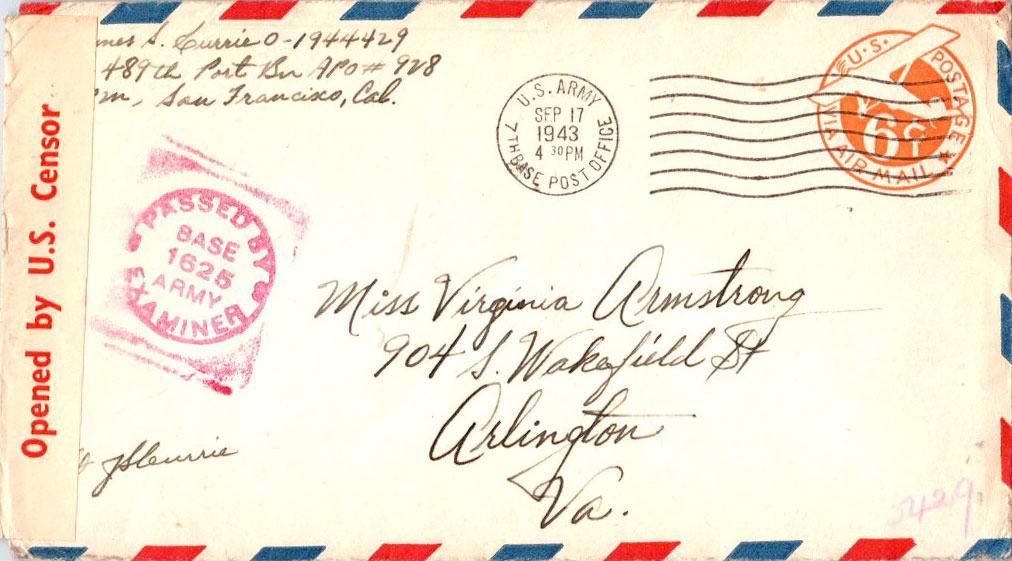 mes S. Currie O-1944429
489th Port Bn APO # 928
San Francisco, Cal.
U.S. ARMY
SEP 17
1943
4 30 PM
7TH BASE POST OFFICE
U.S. POSTAGE
6¢
VIA AIR MAIL
Opened by U.S. Censor
PASSED BY
BASE
1625
ARMY
EXAMINER
Miss Virginia Armstrong
904 S. Wakefield St
Arlington
Va.
JSCurrie
5429